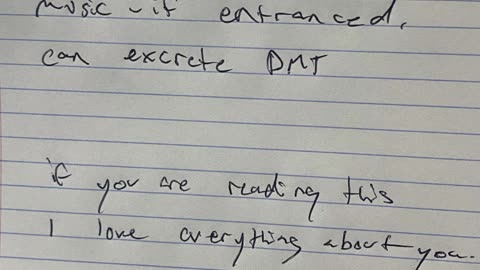 music - if entranced,
can excrete DMT
if you are reading this
I love everything about you.